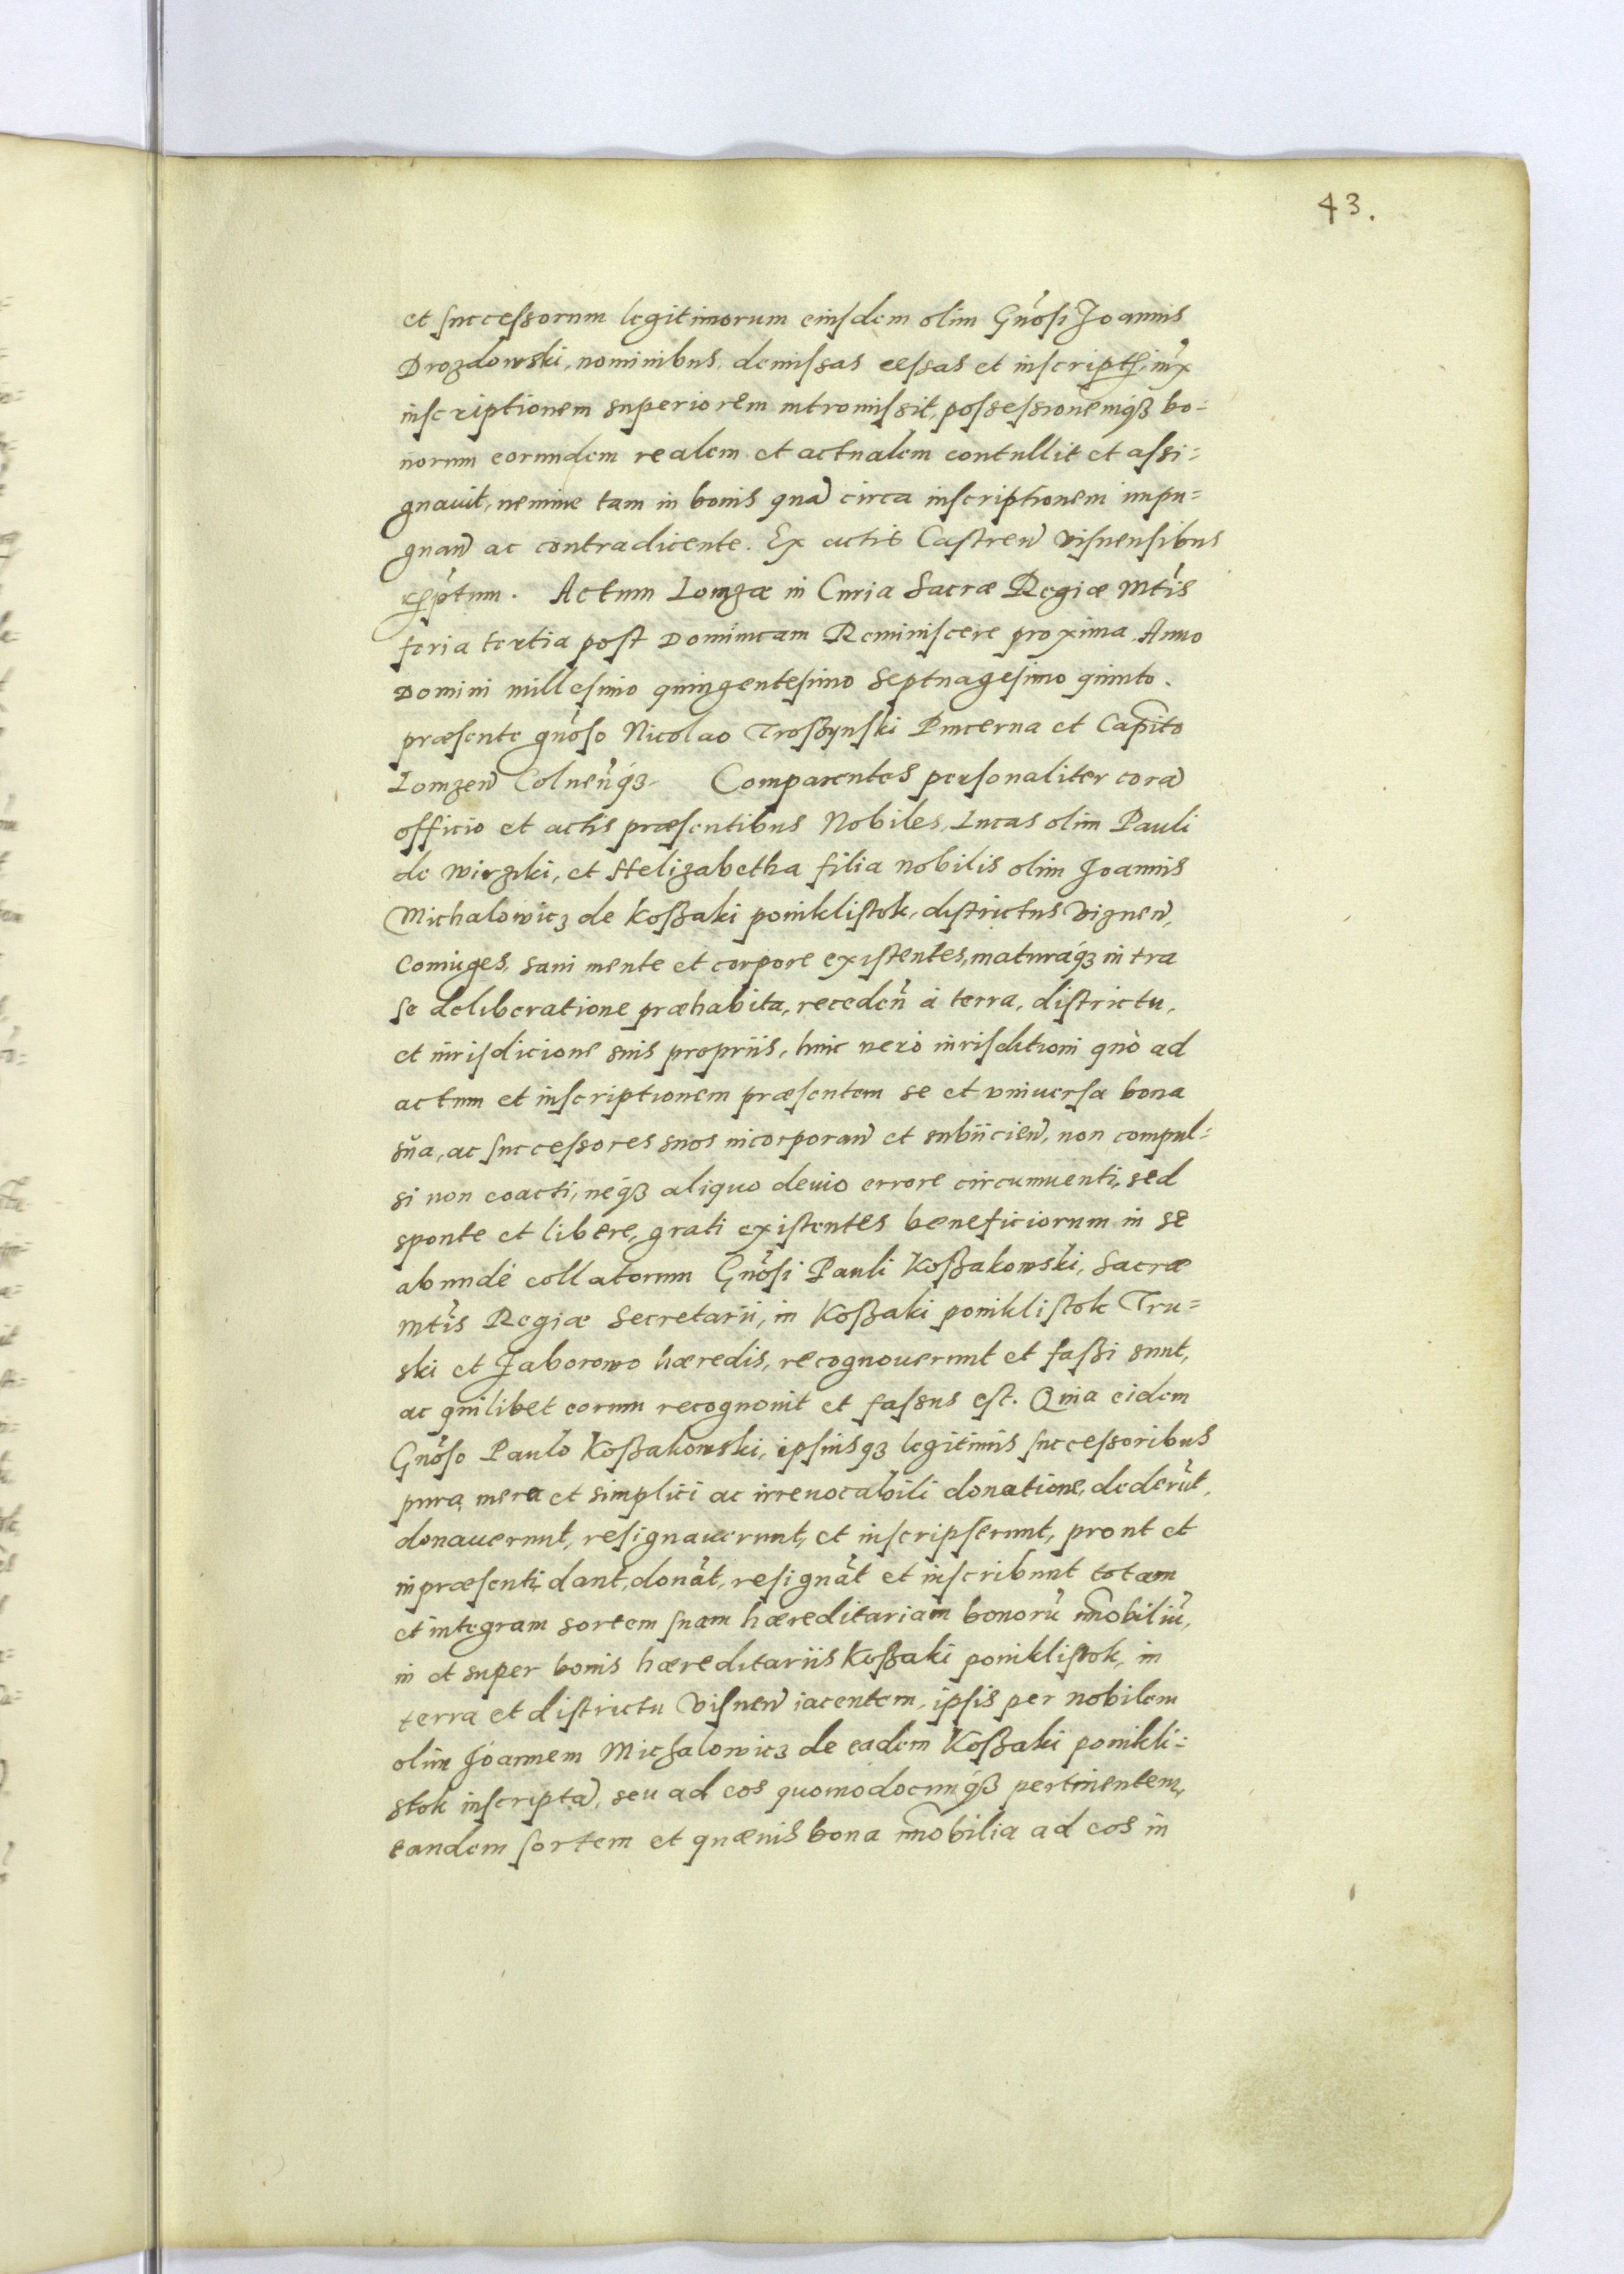 43.
et successorum legitimorum eiusdem olim Gnosi Joannis
Drozdowski, nominibus, demissas cessas et inscriptas, iux
inscriptionem superiorem intromissit, possessionemqȝ bo=
norum eorundem realem et actualem contullit et assi=
gnauit, nemine tam in bonis quā circa inscriptionem impu=
gnan̄ ac contradicente. Ex actis Castren̄ Visnensibus
rptum. Actum Lomzæ in Curia Sacræ Regiæ Mtis
feria tertia post Dominicam Reminiscere proxima Anno
Domini millesimo quingentesimo Septuagesimo quinto.
præsente gnoso Nicolao Troszynski Pincerna et Capito
Lomzen̄ Colnen̄qȝ. Comparentes personaliter corā
officio et actis præsentibus Nobiles, Lucas olim Pauli
de Wirzki, et Helizabetha filia nobilis olim Joannis
Michalowicz de Koszaki ponikłistok, districtus Viznen̄,
Coniuges, sani mente et corpore existentes, maturaqȝ intra
se deliberatione præhabita, recedeñ à terra, districtu,
et iurisdicione suis propriis, huic verò iurisditioni quò ad
actum et inscriptionem præsentem se et vniuersa bona
sua, ac successores suos incorporan̄ et subiicien̄, non compul=
si non coacti, neqȝ aliquo deuio errore circumuenti, sed
sponte et libere, grati existentes beneficiorum in se
abundè collatorum Gnosi Pauli Koszakowski, Sacræ
Mtis Regiæ Secretarii, in Koszaki poniklistok Tru=
ski et Jaborowo hæredis, recognouerunt et faszi sunt,
ac quilibet eorum recognouit et fassus est. Quia eidem
Gnoso Paulo Koszakowski, ipsiusqȝ legitimis successoribus
pura, mera et simplici ac irreuocabili donatione, dederūt,
donauerunt, resignauerunt, et inscripserunt, prout et
in præsenti dant, donāt, resignāt et inscribunt totam
et integram sortem suam hæreditariam bonorū im̄obiliū,
in et super bonis hæreditariis Koszaki poniklistok, in
terra et districtu Visnen̄ iacentem, ipsis per nobilem
olim Joannem Michalowicz de eadem Koszaki ponikli=
stok inscriptā, seu ad eos quomodocunqȝ pertinentem,
eandem sortem et quæuis bona im̄obilia ad eos in